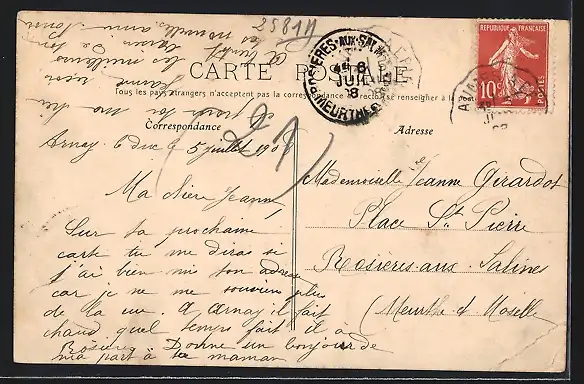 2581y
CARTE POSTALE
Tous les pays étrangers n'acceptent pas la correspondance au recto se renseigner à la
Correspondance
Adresse
ROSIERES-AUX-SALINES
8
JUIL
08
MEURTHE
REPUBLIQUE FRANÇAISE
10c
POSTES
21
Arnay le Duc le 5 juillet 1908
Ma chère Jeanne,
Sur ta prochaine
carte tu me diras si
j'ai bien mis son adresse
car je ne me souviens plus
de la rue. A Arnay il fait
chaud quel temps fait il à
Rosières Donne un bonjour de
ma part à ta maman
Mademoiselle Jeanne Girardot
Place St Pierre
Rosières-aux-Salines
(Meurthe et Moselle
et pour toi ma
Jeanne
les meilleurs
A bientôt
de tes nouvelles, ami